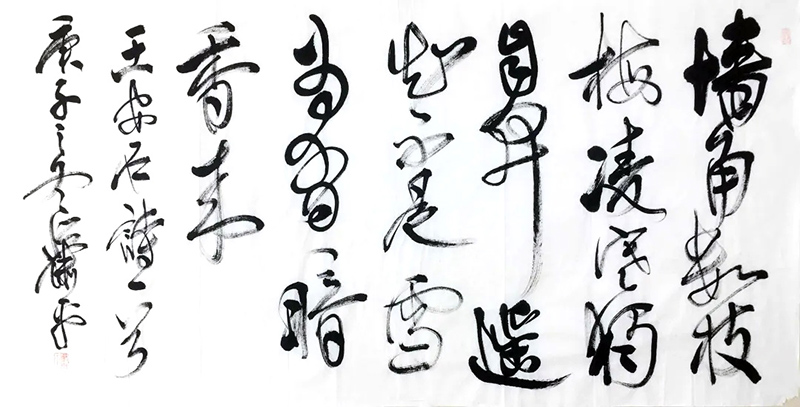 墙角数枝
梅凌寒独
自开遥
知不是雪
为有暗
香来
王安石诗一首
庚子之冬